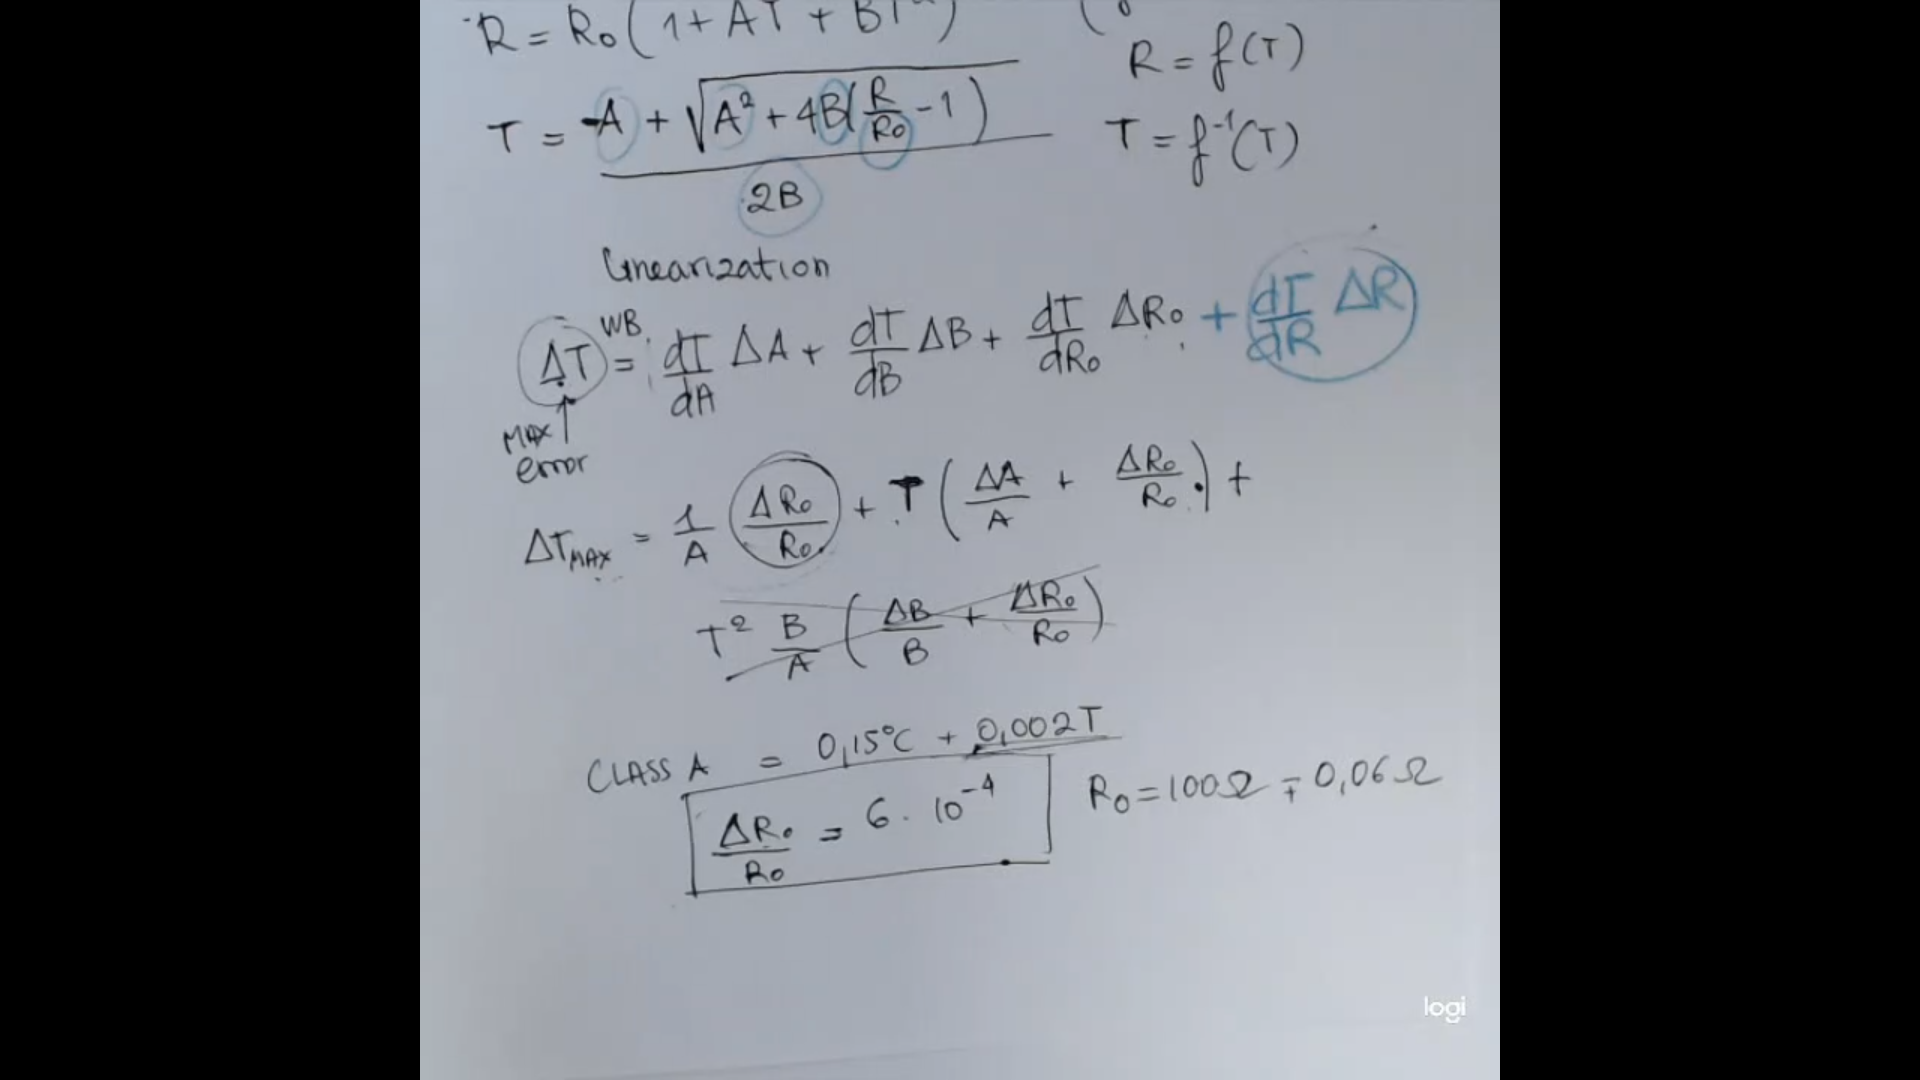 R = R₀ ( 1 + AT + BT² )
R = f(T)
T = -A + √(A² + 4B(R/R₀ - 1)) / 2B
T = f⁻¹(T)
Linearization
ΔT WB = dT/dA ΔA + dT/dB ΔB + dT/dR₀ ΔR₀ + dT/dR ΔR
MAX
error
ΔT MAX = 1/A ΔR₀/R₀ + T ( ΔA/A + ΔR₀/R₀ ) +
T² B/A ( ΔB/B + ΔR₀/R₀ )
CLASS A = 0,15°C + 0,002T
ΔR₀/R₀ = 6 · 10⁻⁴
R₀ = 100Ω ∓ 0,06Ω
logi